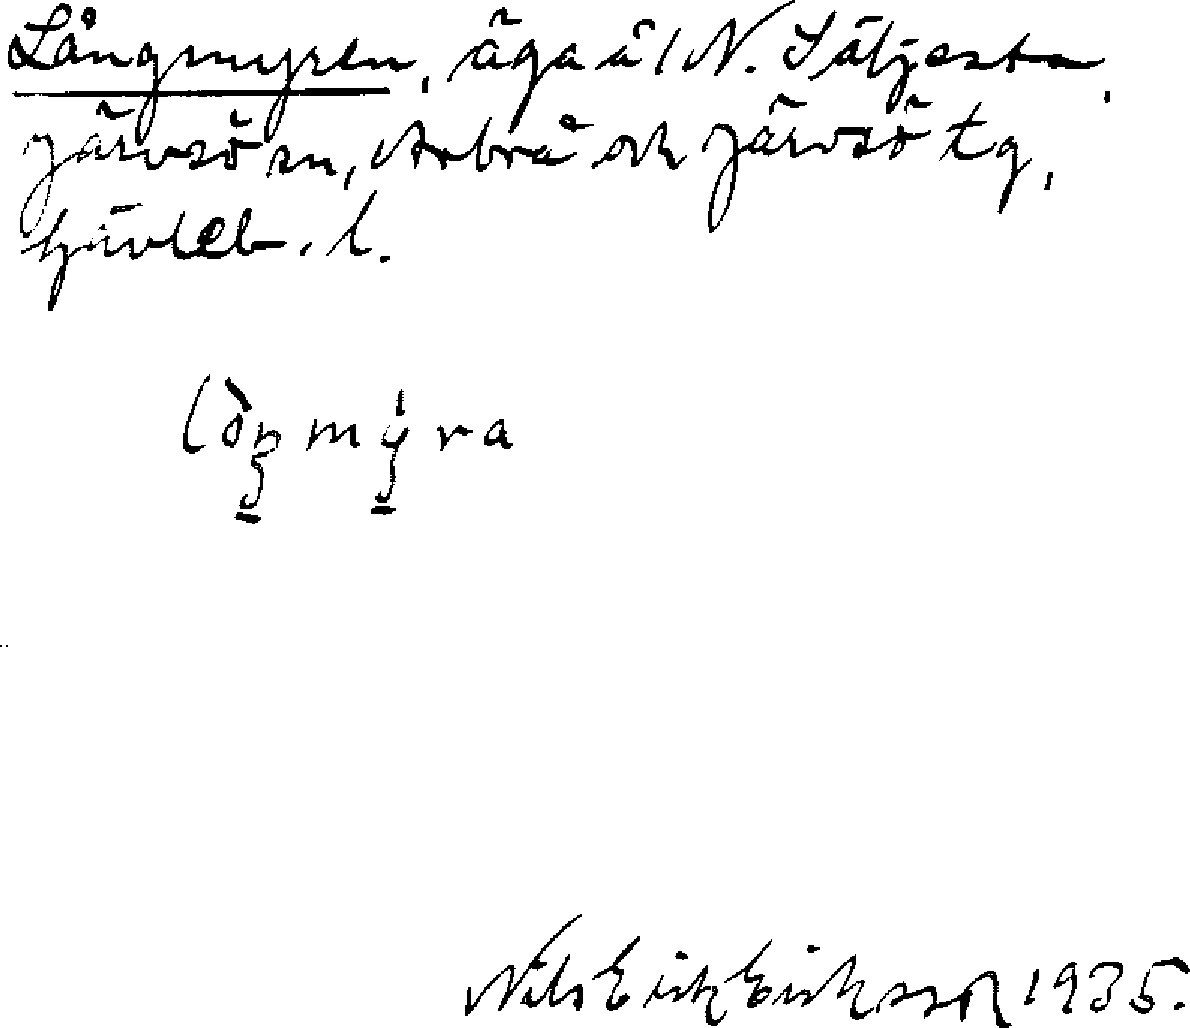 Långmyren, äga å 1 N. Säljesta,
Järvsö sn, Arbrå och Järvsö tg,
Gävleb. l.
lòŋmy̆ra
Nils Erik Eriksson 1935.